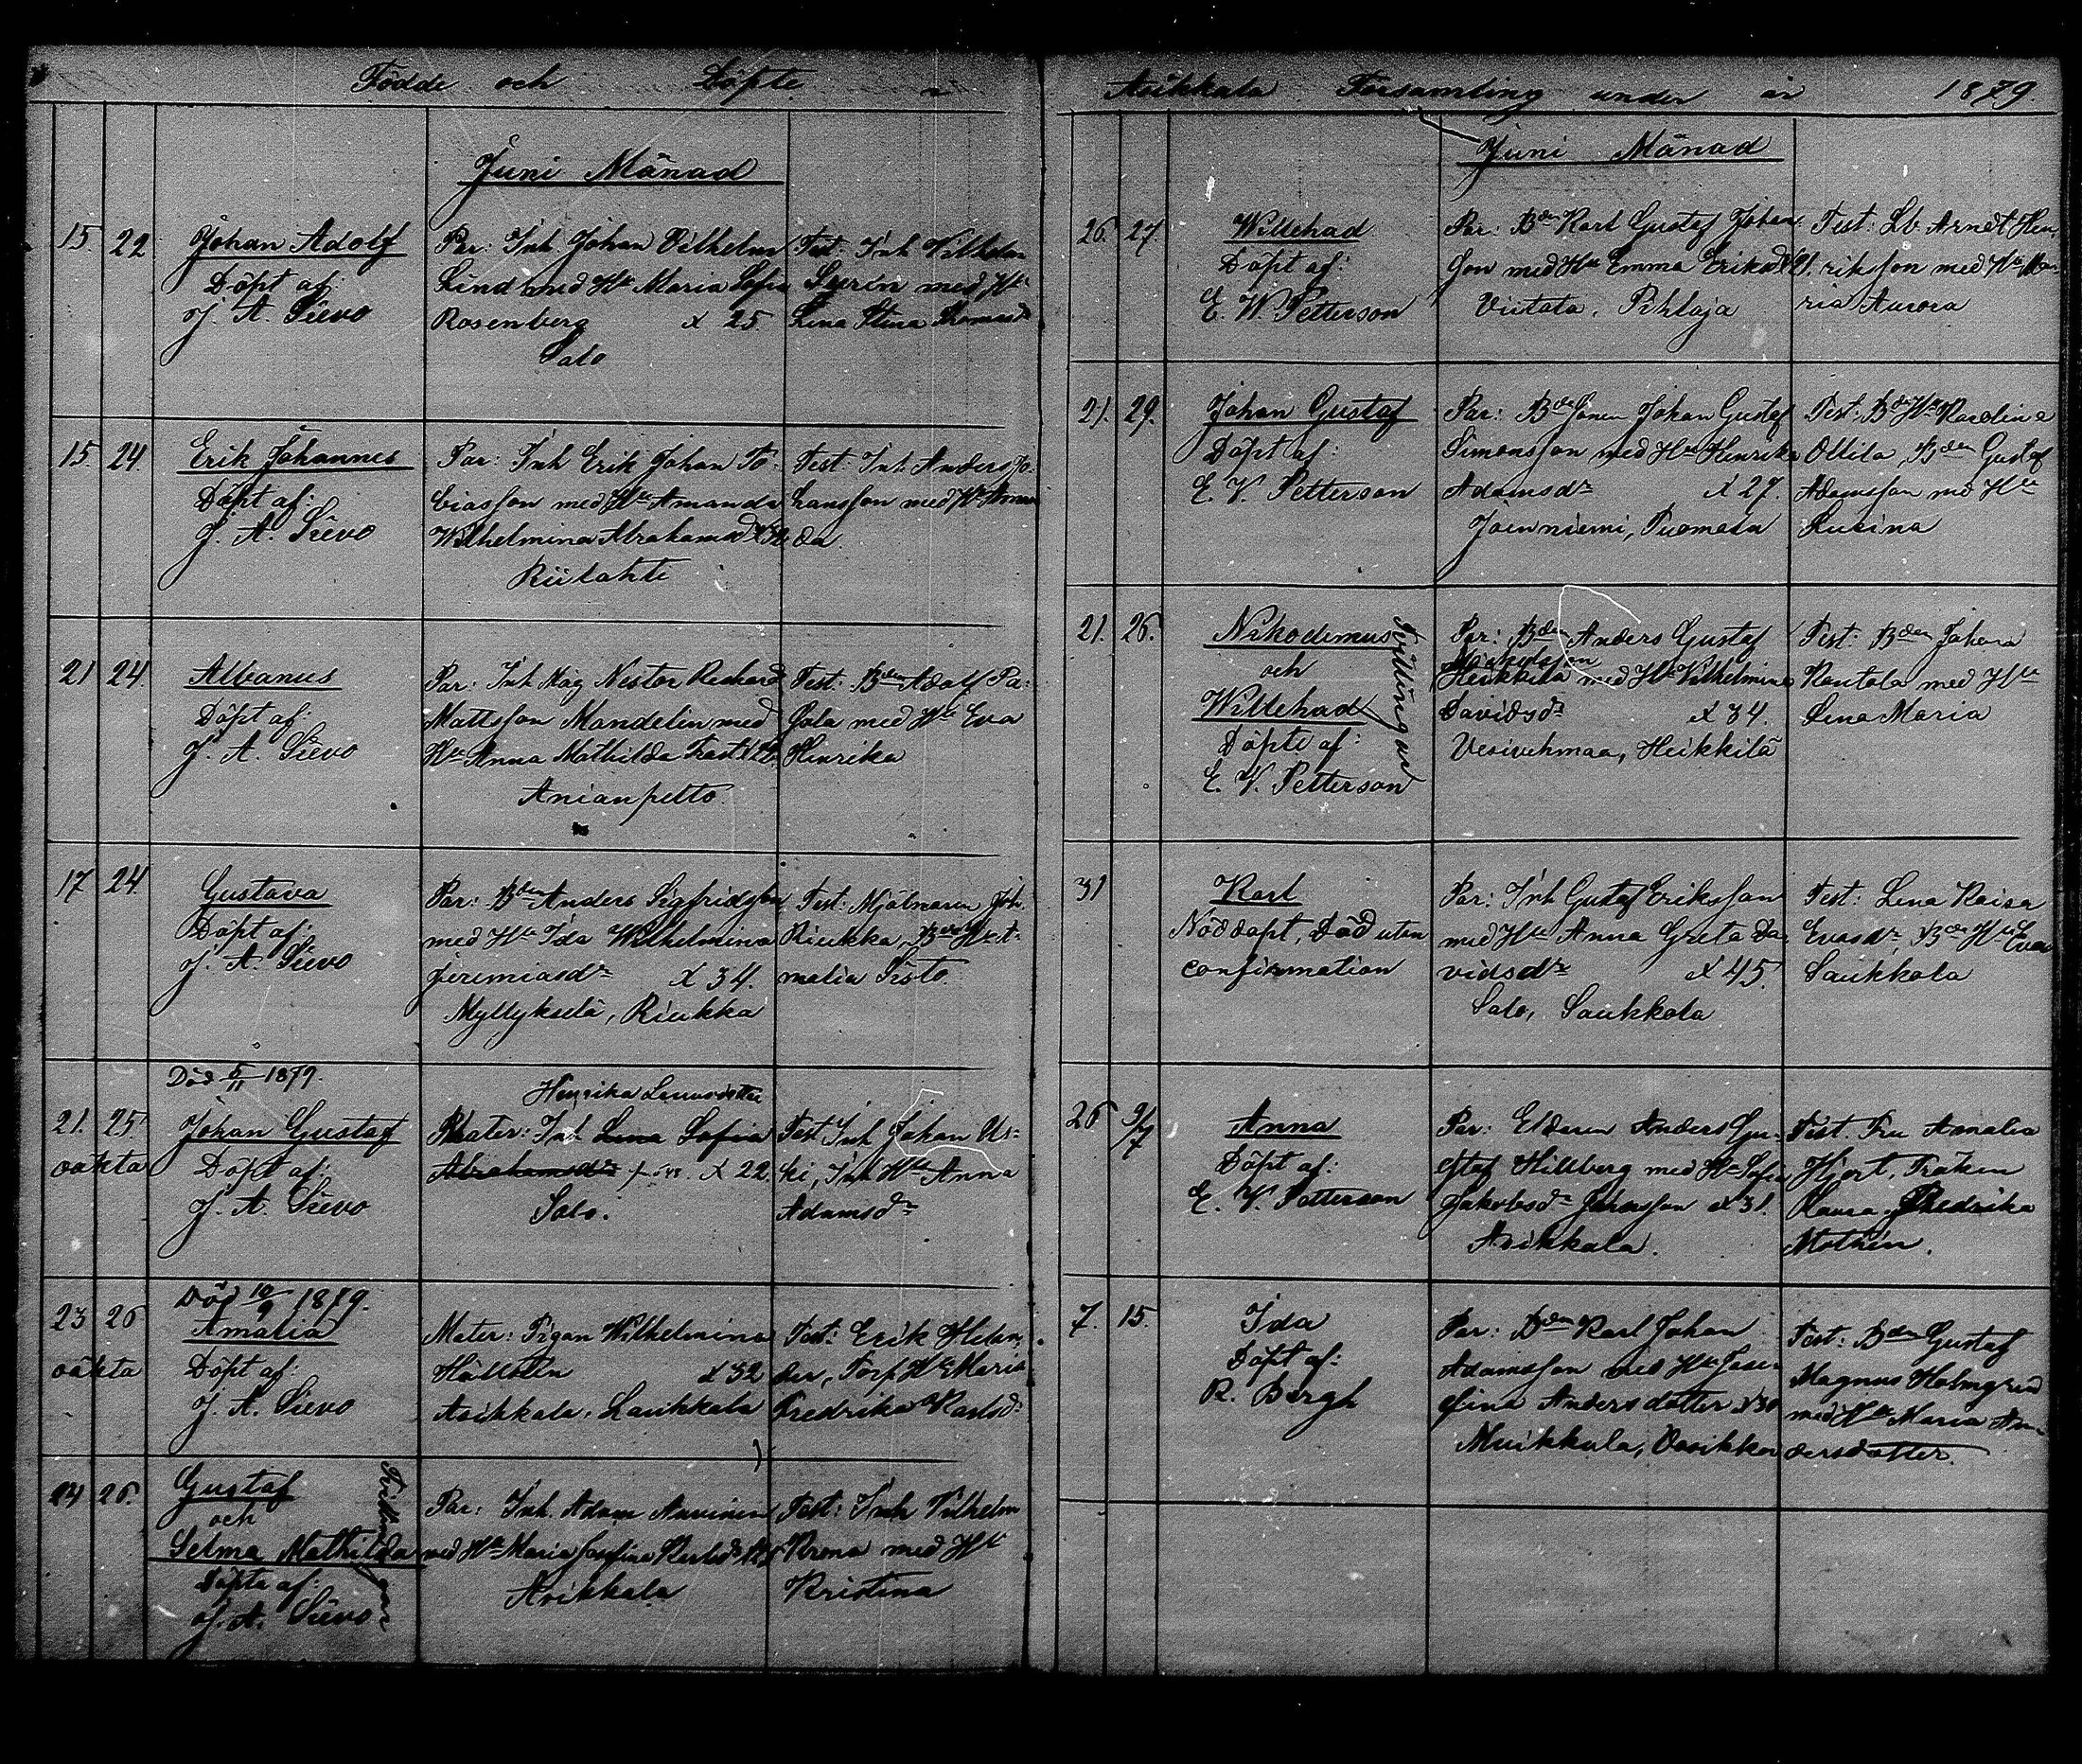 Födde och Döpte i
Juni Månad
15 22 Johan Adolf
Döpt af:
J. A. Sievo
Par: Inh Johan Vilhelm
Lind med Hu Maria Sofia
Rosenberg x 25
Salo
Test: Inh Vilhelm
med Hu
Lena Stina
15. 24. Erik Johannes
Döpt af:
J. A. Sievo
Par: Inh Erik Johan To-
biasson med Hu Amanda
Wilhelmina Abrahamsd
Riilahti
Test: Inh Anders Jo-
hansson med Hu Aman
da.
21 24. Albanus
Döpt af:
J. A. Sievo
Par: Inh Mag Nestor Richard
Mattsson Mandelin med
Hu Anna Mathilda
Anianpelto.
Test: Bden Adolf Pa-
sala med Hu Eva
Henrika
17 24 Gustava
Döpt af:
J. A. Sievo
Par: Bden Anders Sigfridsson
med Hu Ida Wilhelmina
Jeremiasdr x 34.
Myllykselä, Riukka
Test: Mjölnaren Joh.
Riukka, Bden Hu A-
malia Sisto.
Död 5/11 1879.
21. 25. Johan Gustaf
oäkta
Döpt af:
J. A. Sievo
Henrika
Mater: Inh Lena Sofia
Abrahamsdr x 22.
Salo.
Test Inh Johan Us-
ki, Inh Hu Anna
Adamsdr
Död 10/9 1879.
23 26 Amalia
oäkta
Döpt af:
J. A. Sievo
Mater: Pigan Wilhelmina
Hällstén x 32
Asikkala, Laukkala
Test: Erik Helan
der, Torp Hu Maria
Fredrika Karlsd:
24 26. Gustaf
och
Selma Mathilda
Döpte af:
J. A. Sievo
Tvillingar
Par: Inh. Adam Nuvinen
med Hu Maria Josefina
Asikkala
Test: Inh Vilhelm
Krona med Hu
Kristina
Asikkala Församling under år 1879.
Juni Månad
26. 27. Willehad
Döpt af:
E. W. Petterson
Par: Bden Karl Gustaf Johan
son med Hu Emma Eriksd 21.
Viitala, Pihlaja
Test: Lb. Arndt Hen-
riksson med Hu Ma-
ria Aurora
21. 29. Johan Gustaf
Döpt af:
E. V. Petterson
Par: Bdesonen Johan Gustaf
Simonsson med Hu Henrika
Adamsdr x 27.
Joenniemi, Tuomala
Test: Bde Hu Karolina
Ollila, Bden Gustaf
Adamsson med Hu
Lusina
21. 26. Nikodemus
och
Willehad
Döpte af:
E. V. Petterson
Tvillingar
Par: Bden Anders Gustaf
Michelsson
Heikkilä med Hu Vilhelmina
Davidsdr x 34.
Vesivehmaa, Heikkilä
Test: Bden Johan
Rautala med Hu
Lena Maria
31 Karl
Nöddöpt, Död utan
confirmation
Par: Inh Gustaf Eriksson
med Hu Anna Greta Da-
vidsdr x 45.
Salo, Saukkola
Test: Lena Kaisa
Evasdr, Bde Hu Eva
Saukkola
26 9/7 Anna
Döpt af:
E. V. Petterson
Par: Eldaren Anders Gu-
staf Hillberg med Hu Sofia
Jakobsdr Johansson x 31.
Asikkala.
Test. Fru Amalia
Hjort, Fröken
Laura Fredrika
Molin.
7. 15. Ida
Döpt af:
R. Bergh
Par: Bden Karl Johan
Adamsson med Hu Jose-
fina Andersdotter x 30
Muikkula, Vesikko
Test: Bden Gustaf
Magnus Holmgren
med Hu Maria An-
dersdotter.